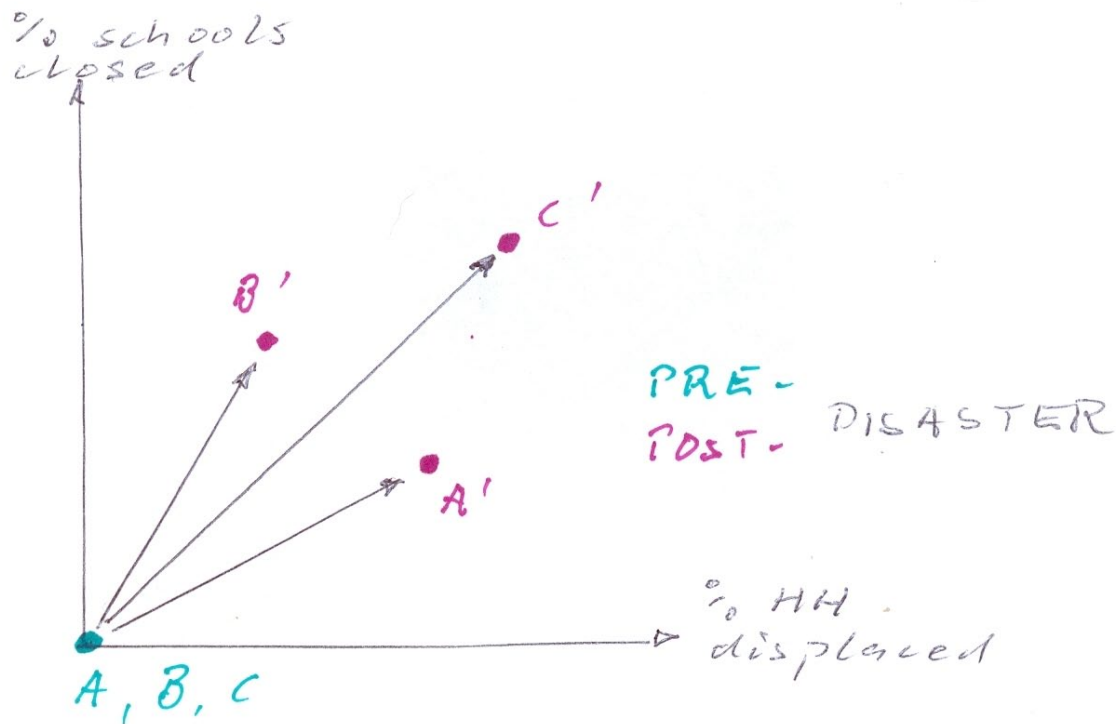 % schools
closed
C'
B'
PRE-
POST- DISASTER
A'
% HH
displaced
A, B, C